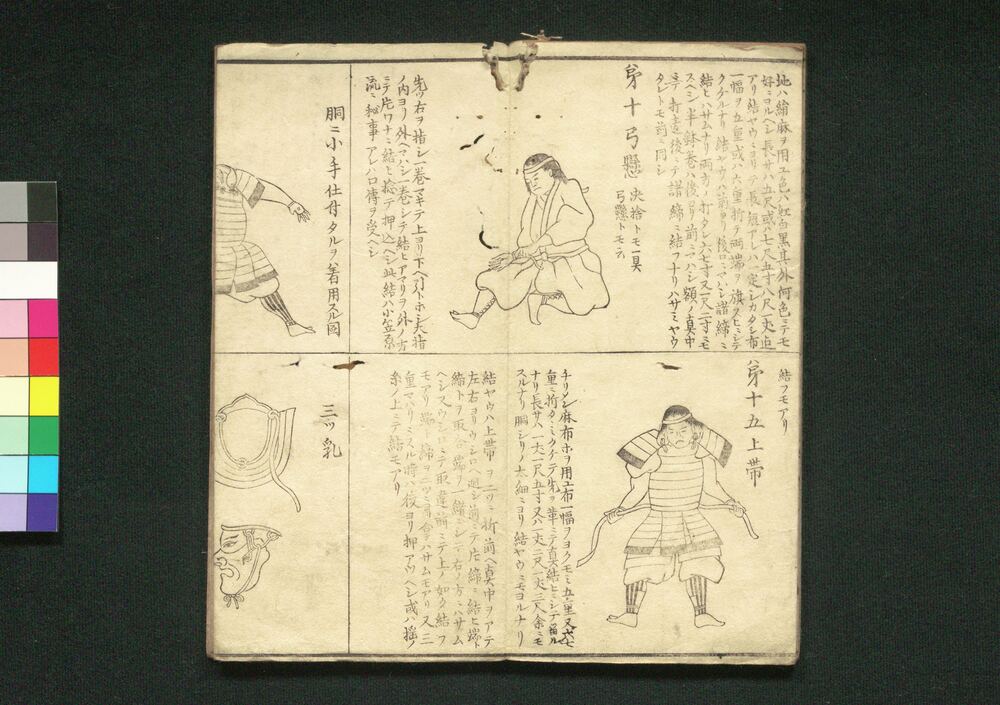 地ハ絹麻ヲ用エ色ハ紅白黒其外何色ニテモ
好ニヨルヘシ長サハ五尺或ハ七尺五寸八尺一丈迠
アリ結ヤウニヨリテ長短アレハ定シカタシ布
一幅ヲ五重或ハ六重折テ両端ヲ旗スヒニシテ
クケルナリ鉢ヤウハ前ヨリ後ロニマハシ諸締ニ
結ヒハサムナリ両方ノ打タレ六七寸又一尺二寸ニモ
スヘシ半鉢巻ハ後ロヨリ前ニマハシ額ノ真中
ニテ打違後ニテ諸締ニ結フナリハサミヤウ
タレトモ前ニ同シ
第十弓懸
決捨トモ一具
弓懸トモ云
先ツ右ヲ指シ一巻マキテ上ヨリ下ヘ引トホシ大指
ノ内ヨリ外ヘマハシ一巻シテ結ヒアマリヲ外ノ方
ニテ片ワナニ結ヒ捻テ押込ヘシ此結ハ小笠原
流ニ秘事アレハ口傳ヲ受ヘシ
胴ニ小手仕付タルヲ着用スル図
結フモアリ
第十五上帯
チリメン麻布ホヲ用エ布一幅ヲヨクモミ五重又ハ七
重ニ折タミクケテ先ヲ革ニテ真結ヒニシテ留ル
ナリ長サハ一丈一尺五寸又ハ一丈二尺一丈三尺余ニモ
スルナリ胴シリノ太細ニヨリ結ヤウニモヨルナリ
結ヤウハ上帯ヲ二ツニ折前ヘ真中ヲアテ
左右ヨリウシロヘ廻シ前ニテ片締ニ結ヒ端ト
結トヲ取合端ヲ一締ニシテ右ノ方ニハサム
ヘシ又ウシロニテ取違前ニテ上ノ如ク結フ
モアリ端ノ締ヲ二ツニ合ハサムモアリ又三
重マハリニスル時ハ後ヨリ押アウヘシ或ハ揺ノ
糸ノ上ニテ結モアリ
三ツ乳